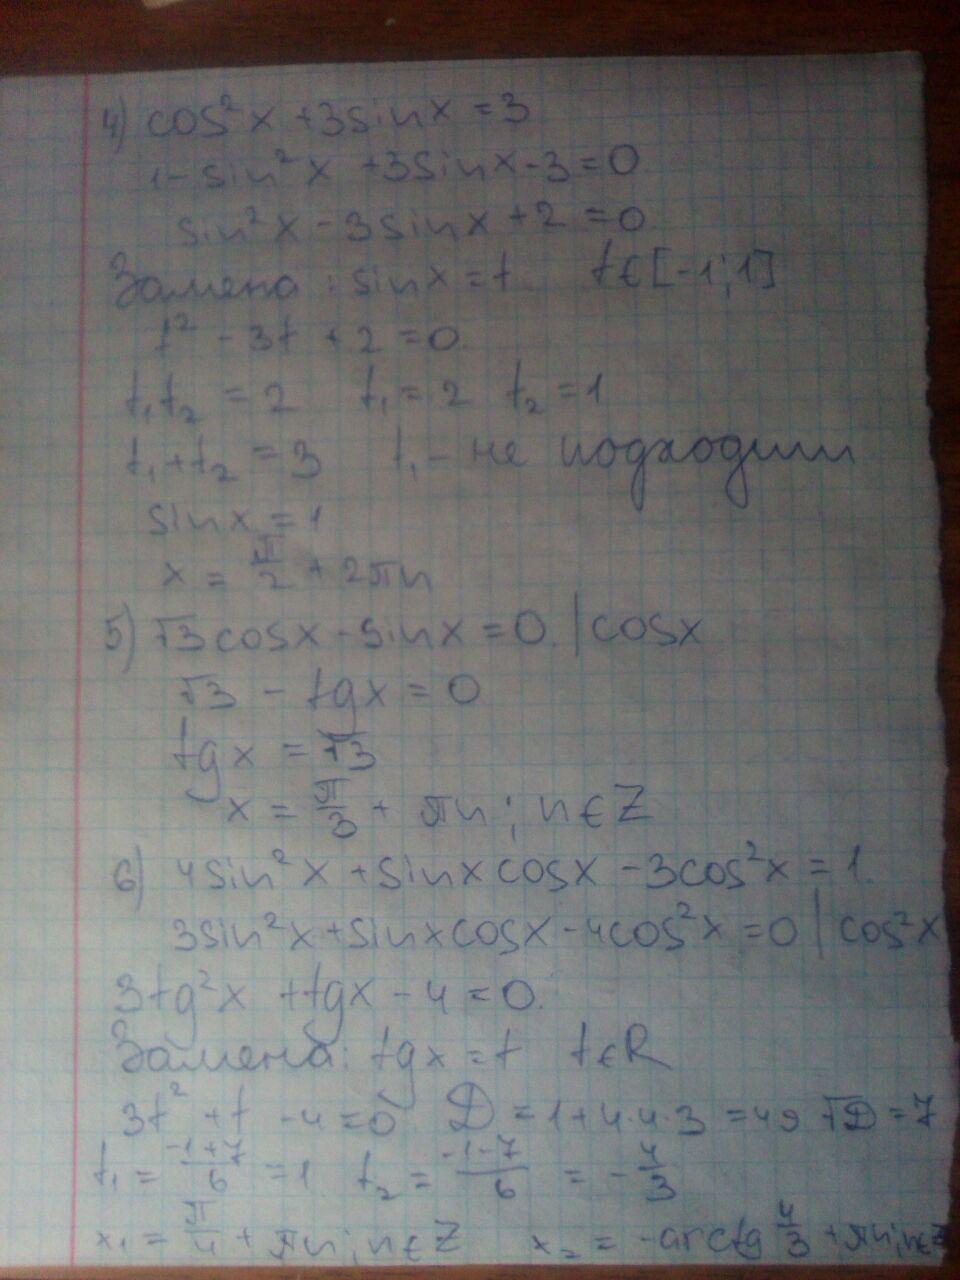 4) cos²x + 3sinx = 3
1 - sin²x + 3sinx - 3 = 0
sin²x - 3sinx + 2 = 0
Замена: sinx = t t∈[-1;1]
t² - 3t + 2 = 0.
t₁t₂ = 2 t₁ = 2 t₂ = 1
t₁+t₂ = 3 t₁ - не подходит
sinx = 1
x = π/2 + 2πn
5) √3cosx - sinx = 0. | cosx
√3 - tgx = 0
tgx = √3
x = π/3 + πn; n∈Z
6) 4sin²x + sinxcosx - 3cos²x = 1.
3sin²x + sinxcosx - 4cos²x = 0 | cos²x
3tg²x + tgx - 4 = 0.
Замена: tgx = t t∈R
3t² + t - 4 = 0 D = 1 + 4·4·3 = 49 √D = 7
t₁ = (-1+7)/6 = 1 t₂ = (-1-7)/6 = -4/3
x₁ = π/4 + πn; n∈Z x₂ = -arctg 4/3 + πn; n∈Z